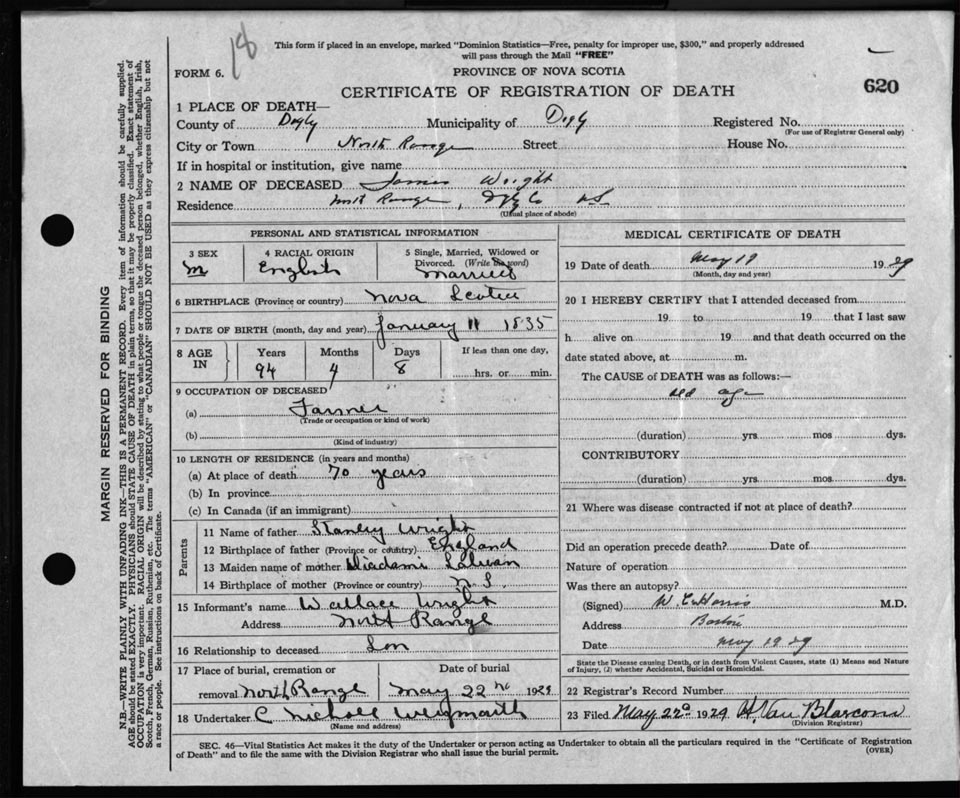 18
This form if placed in an envelope, marked "Dominion Statistics—Free, penalty for improper use, $300," and properly addressed
will pass through the Mail "FREE"
FORM 6.
PROVINCE OF NOVA SCOTIA
CERTIFICATE OF REGISTRATION OF DEATH
620
1 PLACE OF DEATH—
County of Digby Municipality of Digby Registered No.
(For use of Registrar General only)
City or Town North Range Street House No.
If in hospital or institution, give name
2 NAME OF DECEASED James Wright
Residence North Range, Digby Co NS
(Usual place of abode)
PERSONAL AND STATISTICAL INFORMATION
3 SEX
M
4 RACIAL ORIGIN
English
5 Single, Married, Widowed or
Divorced. (Write the word)
Married
6 BIRTHPLACE (Province or country) Nova Scotia
7 DATE OF BIRTH (month, day and year) January 11 1835
8 AGE
IN
Years Months Days If less than one day,
94 4 8 hrs. or min.
9 OCCUPATION OF DECEASED
(a) Farmer
(Trade or occupation or kind of work)
(b)
(Kind of industry)
10 LENGTH OF RESIDENCE (in years and months)
(a) At place of death 70 years
(b) In province
(c) In Canada (if an immigrant)
Parents
11 Name of father Stanley Wright
12 Birthplace of father (Province or country) England
13 Maiden name of mother
14 Birthplace of mother (Province or country) N S
15 Informant's name Wallace Wright
Address North Range
16 Relationship to deceased Son
17 Place of burial, cremation or
Date of burial
removal North Range May 22nd 1929
18 Undertaker C Nichols Weymouth
(Name and address)
MEDICAL CERTIFICATE OF DEATH
19 Date of death May 19 1929
(Month, day and year)
20 I HEREBY CERTIFY that I attended deceased from
19 to 19 that I last saw
h alive on 19 and that death occurred on the
date stated above, at m.
The CAUSE of DEATH was as follows:—
old age
(duration) yrs. mos dys.
CONTRIBUTORY
(duration) yrs. mos dys.
21 Where was disease contracted if not at place of death?
Did an operation precede death? Date of
Nature of operation
Was there an autopsy?
(Signed) M.D.
Address
Date May 19 29
State the Disease causing Death, or in death from Violent Causes, state (1) Means and Nature
of Injury, (2) whether Accidental, Suicidal or Homicidal.
22 Registrar's Record Number
23 Filed May 22d 1929 H Van Blarcom
(Division Registrar)
SEC. 46—Vital Statistics Act makes it the duty of the Undertaker or person acting as Undertaker to obtain all the particulars required in the "Certificate of Registration
of Death" and to file the same with the Division Registrar who shall issue the burial permit.
(OVER)
MARGIN RESERVED FOR BINDING
N.B.—WRITE PLAINLY WITH UNFADING INK—THIS IS A PERMANENT RECORD. Every item of information should be carefully supplied.
AGE should be stated EXACTLY. PHYSICIANS should STATE CAUSE OF DEATH in plain terms, so that it may be properly classified. Exact statement of
OCCUPATION is very important. RACIAL ORIGIN will be described by stating to what people or tongue the deceased person belonged, whether English, Irish,
Scotch, French, German, Russian, Ruthenian, etc. The terms "AMERICAN" or "CANADIAN" SHOULD NOT BE USED as they express citizenship but not
a race or people. See instructions on back of Certificate.